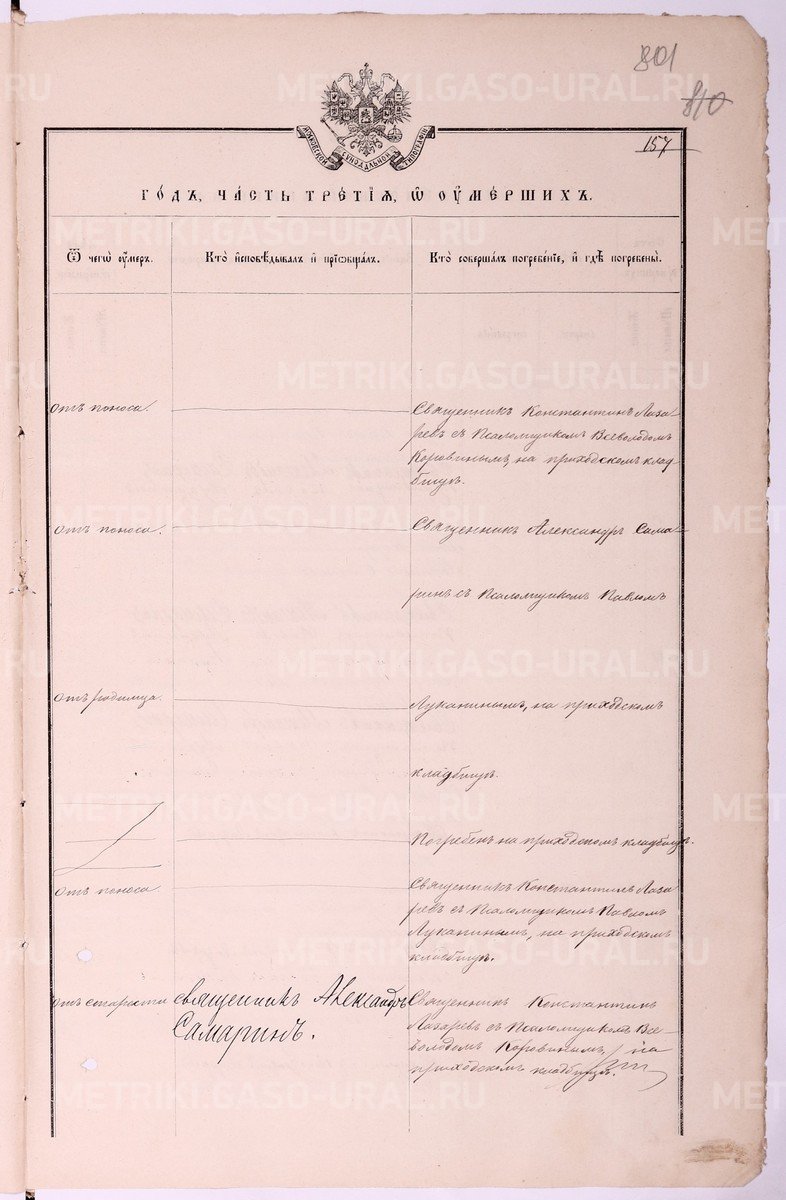 801
810
157
МОСКОВСКОЙ СѴНОДАЛЬНОЙ ТИПОГРАФІИ
ГО́ДЪ, ЧА́СТЬ ТРЕ́ТІѦ, Ѽ ОУ҆МЕ́РШИХЪ.
Ѿ чегѡ̀ оу҆́меръ.
Кто̀ и҆сповѣ́дывалъ и҆ прїѡбща́лъ.
Кто̀ соверша́лъ погребе́нїе, и҆ гдѣ̀ погребены̀.
отъ поноса.
Священникъ Константинъ Лаза-
ревъ съ Псаломщикомъ Всеволодомъ
Коровинымъ, на приходскомъ клад-
бищѣ.
отъ поноса.
Священникъ Александръ Сама-
ринъ съ Псаломщикомъ Павломъ
отъ родимца.
Луканинымъ, на приходскомъ
кладбищѣ.
Погребенъ на приходскомъ кладбищѣ.
отъ поноса.
Священникъ Константинъ Лаза-
ревъ съ Псаломщикомъ Павломъ
Луканинымъ, на приходскомъ
кладбищѣ.
отъ старости
священникъ Александръ
Самаринъ.
Священникъ Константинъ
Лазаревъ съ Псаломщикомъ Все-
володомъ Коровинымъ, на
приходскомъ кладбищѣ.
METRIKI.GASO-URAL.RU